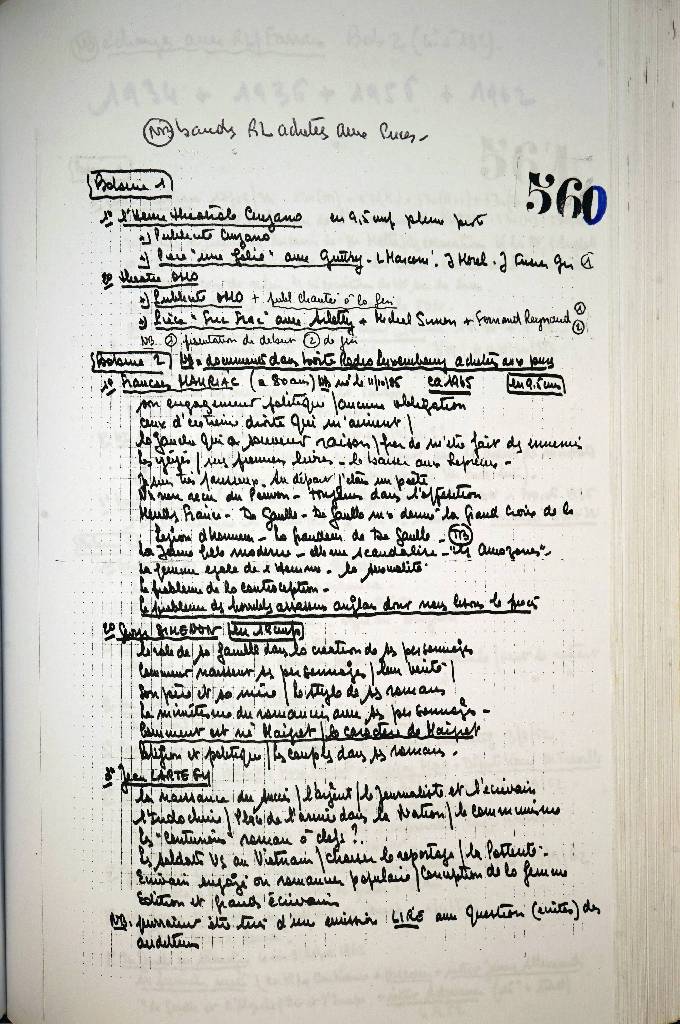 NB bandes RL achetés aux Puces -
560
Bobine 1
1° L'Heure théatrale Cinzano en 9,5 cm/s pleine piste
a) Publicité Cinzano
b) Pièce "une folie" avec Guitry - L Marconi - J Morel - J
2° théatre OMO
a) Publicité OMO + publ chantée à la fin
b) Pièce "Fric Frac" avec Arletty + Michel Simon + Fernand Raynaud
NB. ① présentation de début ② de fin
Bobine 2 NB = documents dans boite Radio Luxembourg achetés aux puces
1° François MAURIAC (a 80 ans) NB né le 11/10/85 ca 1965 en 9.5 cm/s
son engagement politique / aucune obligation
ceux d'extrême droite qui m'aiment /
la gauche qui a souvent raison / fier de m'être fait des ennemis
les yéyés / ses premiers livres - le baiser aux lépreux -
Je suis très paresseux. Au départ j'étais un poète
toujours dans l'opposition
Mendès France - De Gaulle - De Gaulle m'a donné la Grand Croix de la
Légion d'honneur - la grandeur de De Gaulle - TB
La Jeune fille moderne - elle me scandalise - "les Amazones" -
La femme égale de l'Homme - la sexualité -
Le problème de la contraception -
Le problème des horribles assassins anglais dont nous lisons le procès
2° Georges SIMENON en 19 cm/s
le role de sa famille dans la création de ses personnages
Comment naissent ses personnages / leur vérité /
Son père et sa mère / le style de ses romans
Le mimétisme du romancier avec ses personnages -
Comment est né Maigret / le caractère de Maigret
Religion et politique / les couples dans ses romans -
3° Jean LARTEGUY
La naissance du succès / l'argent / le journaliste et l'écrivain
L'Indochine / Place de l'armée dans la Nation / le communisme
Les "Centurions" roman à clefs ? -
Les soldats US au Vietnam / choisir le reportage /
Ecrivain engagé ou romancier populaire / Conception de la femme
Edition et grands écrivains
NB. pourraient être tirés d'une émission LIRE aux question (écrites) des
auditeurs